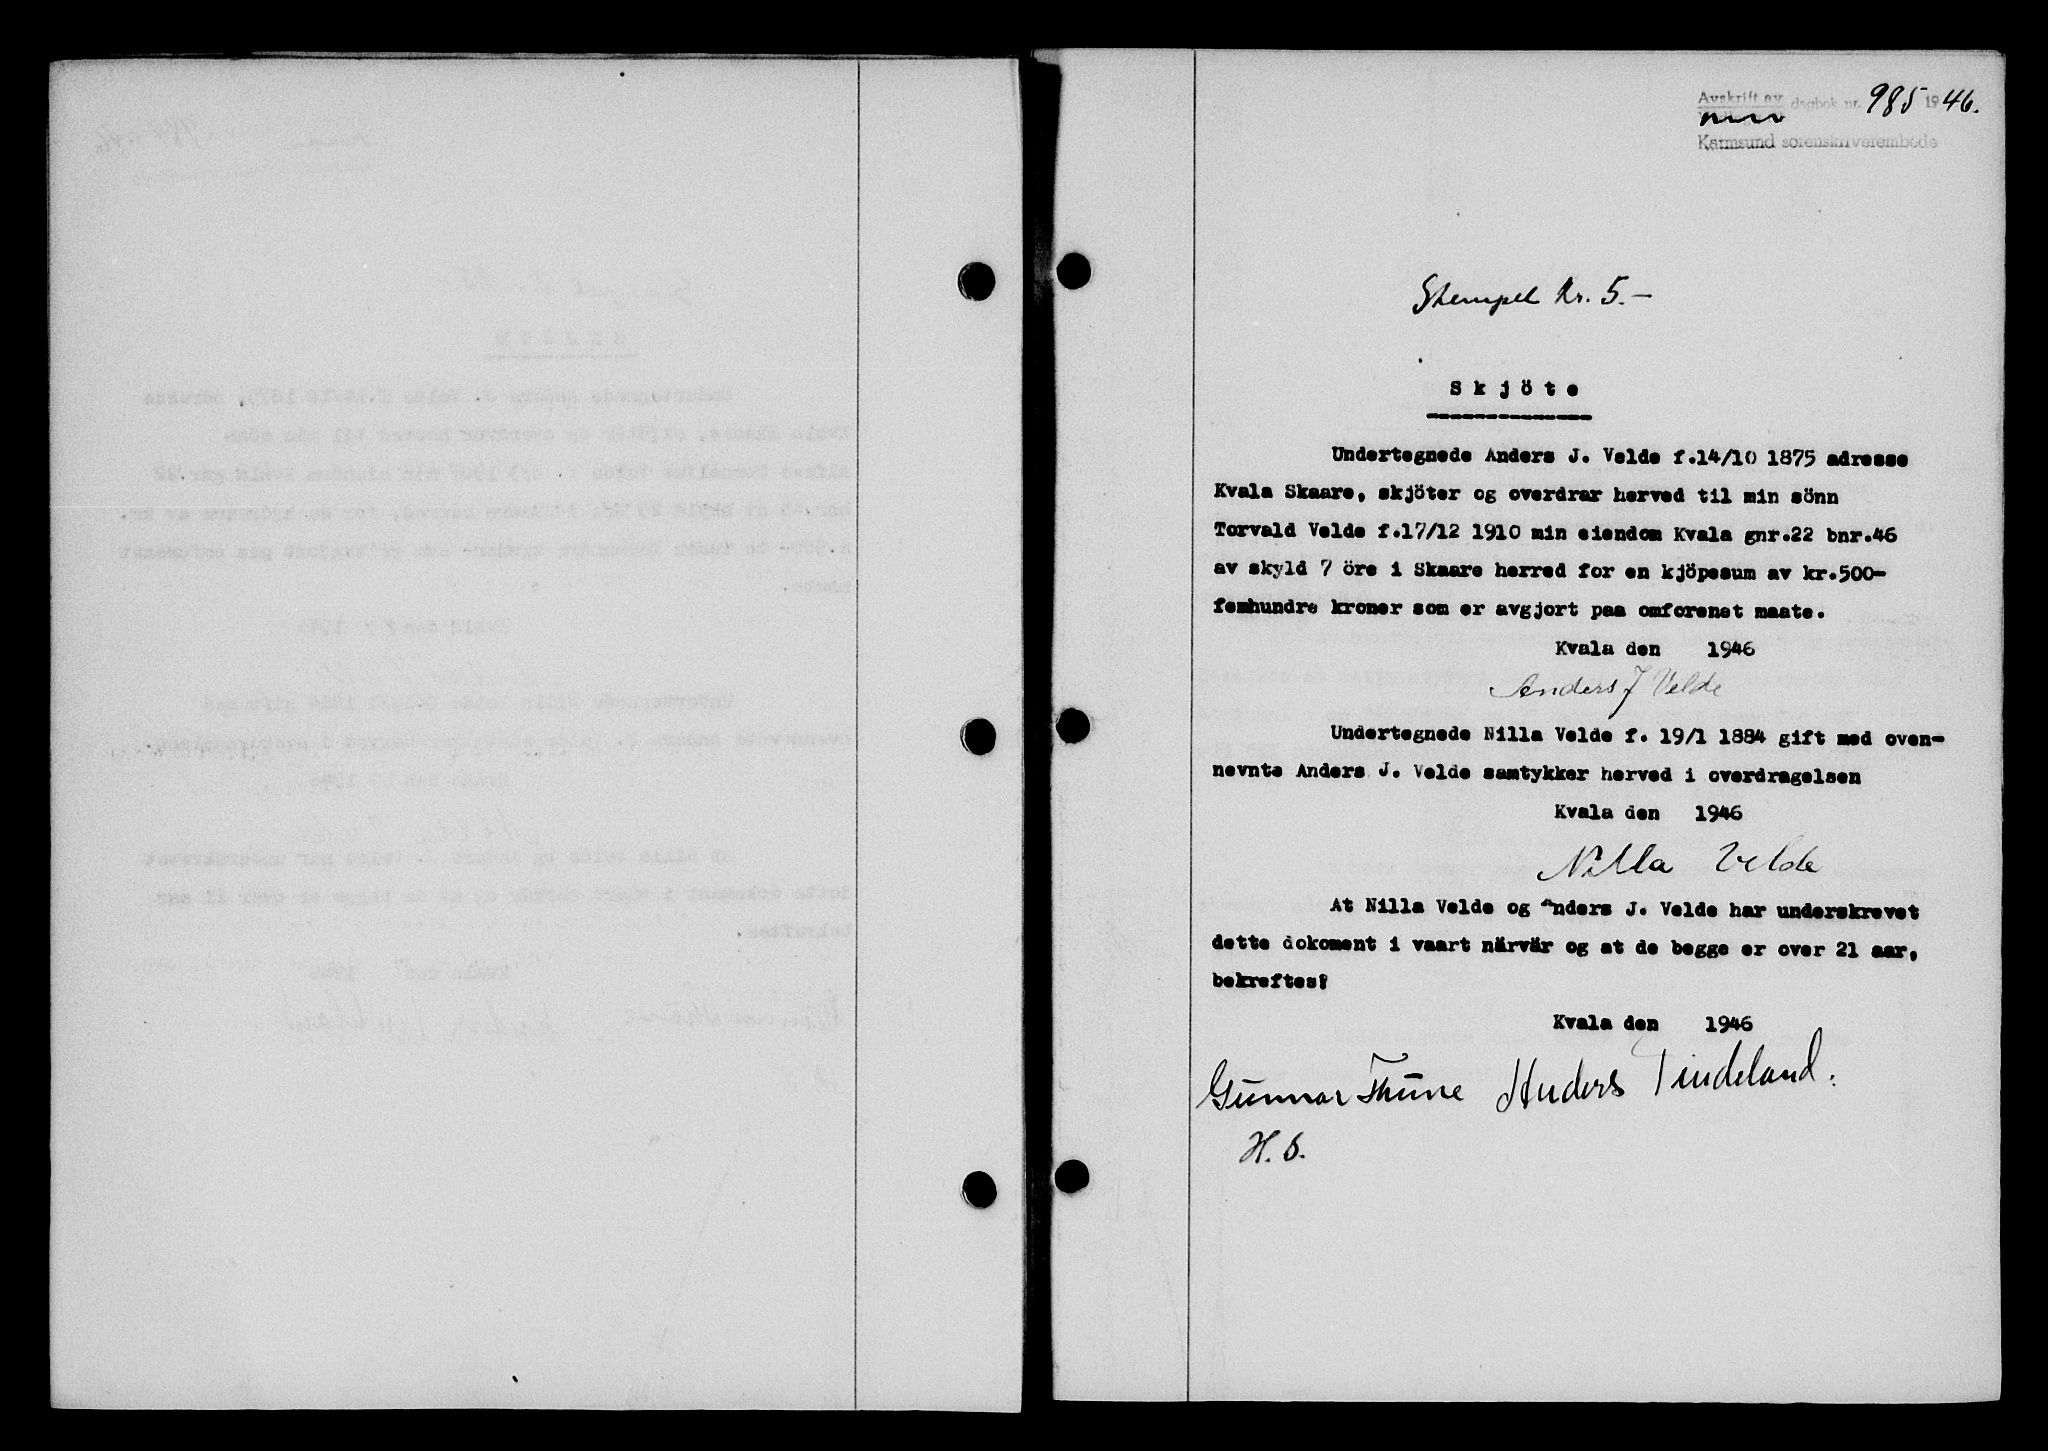 Avskrift av dagbok nr. 985 1946.
Karmsund sorenskriverembede
Stempel kr. 5.-
Skjöte
Undertegnede Anders J. Velde f.14/10 1875 adresse
Kvala Skaare, skjöter og overdrar herved til min sönn
Torvald Velde f.17/12 1910 min eiendom Kvala gnr.22 bnr.46
av skyld 7 öre i Skaare herred for en kjöpesum av kr.500-
femhundre kroner som er avgjort paa omforenet maate.
Kvala den 1946
Anders J Velde
Undertegnede Nilla Velde f. 19/1 1884 gift med oven-
nevnte Anders J. Velde samtykker herved i overdragelsen
Kvala den 1946
Nilla Velde
At Nilla Velde og Anders J. Velde har underskrevet
dette dokoment i vaart närvär og at de begge er over 21 aar,
bekreftes:
Kvala den 1946
Gunnar Thune Anders Tindeland.
H. S.